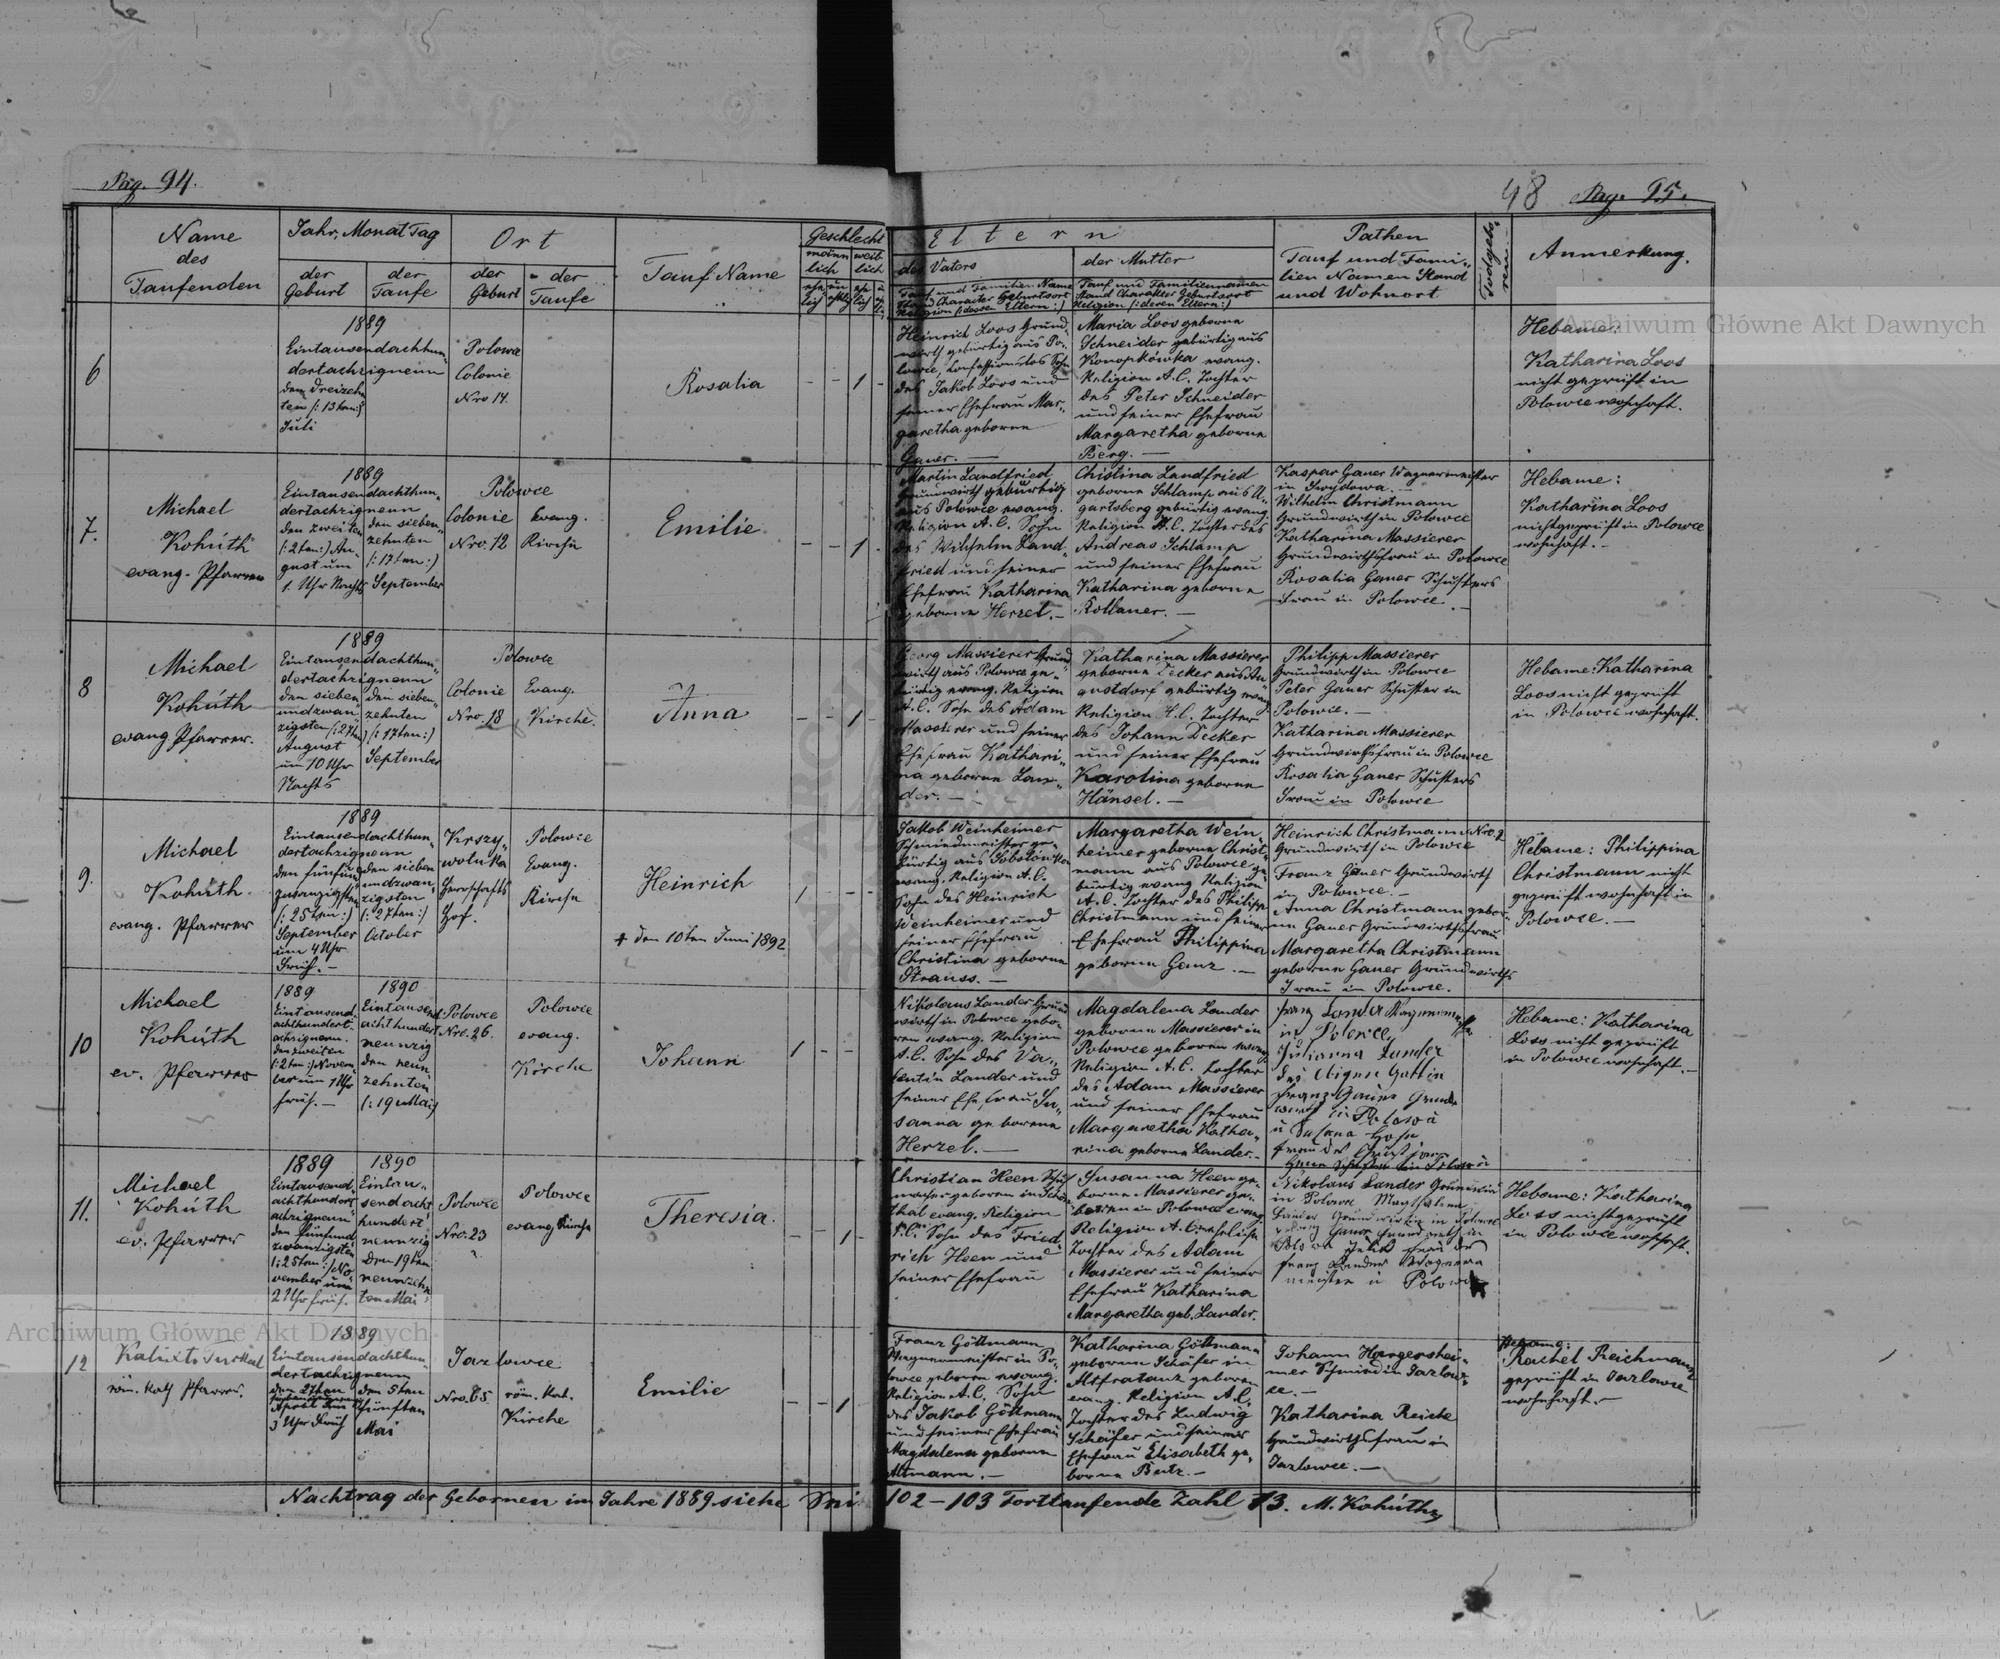 Pag. 94.
48 Pag. 95.
Name
des
Taufenden
Jahr, Monat Tag
der
Geburt
der
Taufe
Ort
der
Geburt
der
Taufe
Tauf Name
Geschlecht
männ
lich
weib
lich
Eltern
des Vaters
der Mutter
Tauf und Familien Name
Stand Character Geburtsort
Religion (: dessen Eltern :)
Tauf und Familiennamen
Stand Charakter Geburtsort
Religion (: deren Eltern :)
Pathen
Tauf und Fami-
lien Namen Stand
und Wohnort
Todgebo-
ren
Anmerkung.
6
1889
Eintausendachthun-
dertachzigneun
den dreizehn
ten (: 13ten :)
Juli
Polowce
Colonie
Nro 14.
Rosalia
1
Heinrich Loos Grund
wirth gebürtig aus Po-
lowce, Confessionslos Sohn
des Jakob Loos und
seiner Ehefrau Mar-
garetha geborne
Ganer. —
Maria Loos geborne
Schneider gebürtig aus
Konopkówka evang.
Religion A.C. Tochter
des Peter Schneider
und seiner Ehefrau
Margaretha geborne
Berg. —
Hebame:
Katharina Loos
nicht geprüft in
Polowce wohnhaft.
7.
Michael
Kohúth
evang. Pfarrer
1889
Eintausendachthun-
dertachzigneun
den zweiten
(: 2ten :) Au-
gust um
1. Uhr Nachts
den sieben-
zehnten
(: 17ten :)
September
Polowce
Colonie
Nro. 12
Evang.
Kirche
Emilie
1
Martin Landfried
Grundwirth gebürtig
aus Polowce evang.
Religion A.C. Sohn
des Wilhelm Land-
fried und seiner
Ehefrau Katharina
geborne Herzel. —
Christina Landfried
geborne Schlamp aus U-
gartsberg gebürtig evang.
Religion A.C. Tochter des
Andreas Schlamp
und seiner Ehefrau
Katharina geborne
Kollauer. —
Kaspar Ganer Wagnermeister
in Swydowa. —
Wilhelm Christmann
Grundwirth in Polowce
Katharina Massierer
Grundwirthsfrau in Polowce
Rosalia Ganer Schusters
Frau in Polowce. —
Hebame:
Katharina Loos
nicht geprüft in Polowce
wohnhaft. —
8
Michael
Kohúth
evang. Pfarrer.
1889
Eintausendachthun-
dertachzigneun
den sieben
undzwan-
zigsten (: 27ten :)
August
um 10 Uhr
Nachts
den sieben-
zehnten
(: 17ten :)
September
Polowce
Colonie
Nro. 18
Evang.
Kirche.
Anna
1
Georg Massierer Grund
wirth aus Polowce ge-
bürtig evang. Religion
A.C. Sohn des Adam
Massierer und seiner
Ehefrau Kathari-
na geborne Lan-
der. —
Katharina Massierer
geborne Decker aus Au-
gustdorf gebürtig evang.
Religion A.C. Tochter
des Johann Decker
und seiner Ehefrau
Karolina geborne
Hänsel. —
Philipp Massierer
Grundwirth in Polowce
Peter Ganer Schuster in
Polowce. —
Katharina Massierer
Grundwirthsfrau in Polowce
Rosalia Ganer Schusters
Frau in Polowce
Hebame: Katharina
Loos nicht geprüft
in Polowce wohnhaft.
9.
Michael
Kohúth
evang. Pfarrer
1889
Eintausendachthun-
dertachzigneun
den fünfund
zwanzigsten
(: 25ten :)
September
um 4 Uhr
Früh. —
den sieben
undzwan-
zigsten
(: 27ten :)
October
Krszy-
woluka
Herrschafts
Hof.
Polowce
Evang.
Kirche
Heinrich
+ den 10ten Juni 1892
1
Jakob Weinheimer
Schmiedmeister ge-
bürtig aus
evang. Religion A.C.
Sohn des Heinrich
Weinheimer und
seiner Ehefrau
Christina geborne
Strauss. —
Margaretha Wein-
heimer geborne Christ-
mann aus Polowce ge-
bürtig evang. Religion
A.C. Tochter des Philipp
Christmann und seiner
Ehefrau Philippina
geborne Ganz. —
Heinrich Christmann Nro. 2
Grundwirth in Polowce
Franz Ganer Grundwirth
in Polowce. —
Anna Christmann gebor-
ne Ganer Grundwirthsfrau
Margaretha Christmann
geborne Ganer Grundwirths
Frau in Polowce.
Hebame: Philippina
Christmann nicht
geprüft wohnhaft in
Polowce. —
10
Michael
Kohúth
ev. Pfarrer
1889
Eintausend-
achthundert
achzigneun.
den zweiten
(: 2ten :) Novem-
ber um 1 Uhr
früh. —
1890
Eintausend
achthundert
neunzig
den neun-
zehnten
(: 19 Mai :)
Polowce
Nro. 26.
Polowce
evang.
Kirche
Johann
1
Nikolaus Lander Grund
wirth in Polowce gebo-
ren evang. Religion
A.C. Sohn des Va-
lentin Lander und
seiner Ehefrau Su-
sanna geborene
Herzel. —
Magdalena Lander
geborene Massierer in
Polowce geboren evang.
Religion A.C. Tochter
des Adam Massierer
und seiner Ehefrau
Margaretha Katha-
rina geborne Lander. —
Franz Lander
in Polowce,
Julianna Lander
Gattin
Franz Ganer Grund
wirth in Polowce
Hebame: Katharina
Loos nicht geprüft
in Polowce wohnhaft. —
11.
Michael
Kohúth
ev. Pfarrer
1889
Eintausend-
achthundert
achzigneun
den fünfund
zwanzigsten
(: 25ten :) No-
vember um
2 Uhr früh.
1890
Eintau-
send acht
hundert
neunzig
den 19ten
neunzehn
ten Mai
Polowce
Nro. 23
Polowce
evang. Kirche
Theresia.
1
Christian Heen Schuh
macher geboren in
thal evang. Religion
A.C. Sohn des Fried-
rich Heen und
seiner Ehefrau
Susanna Heen ge-
borne Massierer ge-
boren in Polowce evang.
Religion A.C. eheliche
Tochter des Adam
Massierer und seiner
Ehefrau Katharina
Margaretha geb. Lander.
Nikolaus Lander Grundwirth
in Polowce Magdalena
Lander Grundwirthin in Polowce
Ganer Grundwirth in
Polowce
Franz Lander Wagner
meister in Polowce
Hebame: Katharina
Loos nicht geprüft
in Polowce wohnhaft.
12
röm. kath Pfarrer.
1889
Eintausendachthun-
dertachzigneun
den 27ten
April um
3 Uhr Früh
den 5ten
fünften
Mai
Jazlowce
Nro. 65
röm. kat.
Kirche
Emilie
1
Franz Göttmann
Wagnermeister in Po-
lowce geboren evang.
Religion A.C. Sohn
des Jakob Göttmann
und seiner Ehefrau
Magdalena geborne
Altmann. —
Katharina Göttmann
geborene Schäfer in
geboren
evang. Religion A.C.
Tochter des Ludwig
Schäfer und seiner
Ehefrau Elisabeth ge-
borne Butz. —
Johann Hargershei-
mer Schmied in Jazlow-
ce. —
Katharina Reiche
Grundwirthsfrau in
Jazlowce. —
Hebame:
Rachel Reichmann
geprüft in Jazlowce
wohnhaft. —
Nachtrag der Gebornen im Jahre 1889 siehe 102 – 103 Fortlaufende Zahl 13. M. Kohúth
Archiwum Główne Akt Dawnych
Archiwum Główne Akt Dawnych